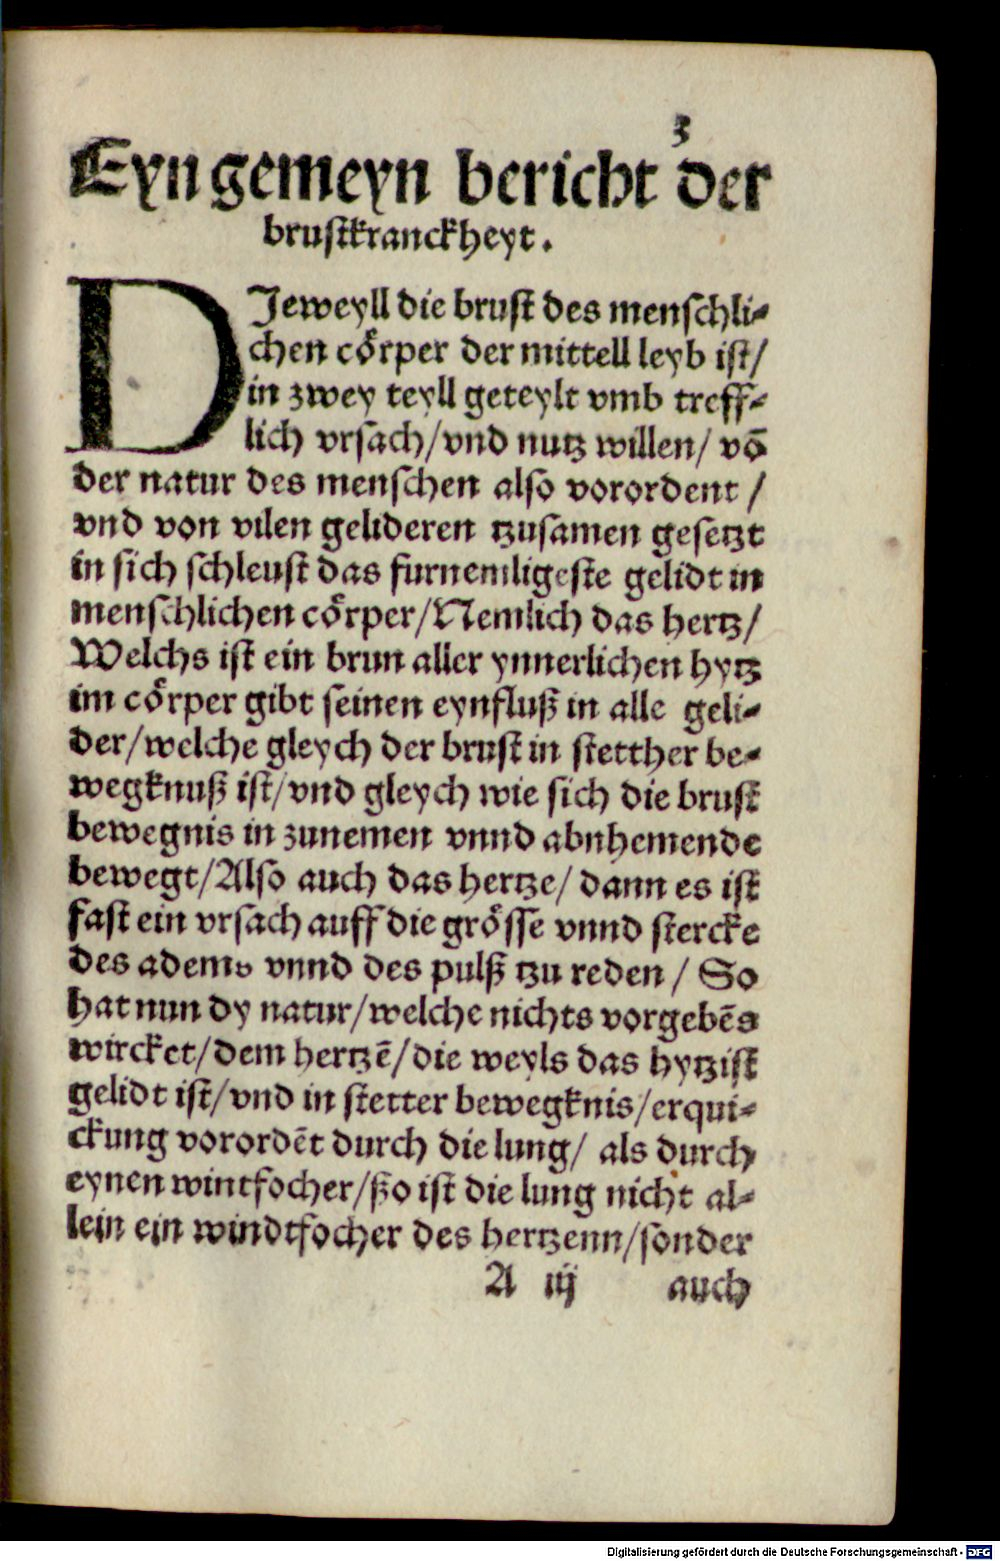 3
Eyn gemeyn bericht der
brustkranckheyt.
DJeweyll die brust des menschli⸗
chen coͤrper der mittell leyb ist/
in zwey teyll geteylt vmb treff⸗
lich vrsach/vnd nutz willen/ vō
der natur des menschen also vorordent /
vnd von vilen gelideren tzusamen gesetzt
in sich schleust das furnemligeste gelidt in
menschlichen coͤrper/Nemlich das hertz/
Welchs ist ein brun aller ynnerlichen hytz
im coͤrper gibt seinen eynfluß in alle geli⸗
der/welche gleych der brust in stetther be⸗
wegknuß ist/vnd gleych wie sich die brust
bewegnis in zunemen vnnd abnhemende
bewegt/Also auch das hertze/ dann es ist
fast ein vrsach auff die groͤsse vnnd stercke
des adems vnnd des pulß tzu reden / So
hat nun dy natur/welche nichts vorgebēs
wircket/dem hertzē/die weyls das hytzist
gelidt ist/vnd in stetter bewegknis/erqui⸗
ckung vorordēt durch die lung/ als durch
eynen wintfocher/ßo ist die lung nicht al⸗
lein ein windtfocher des hertzenn/sonder
A iij auch
Digitalisierung gefördert durch die Deutsche Forschungsgemeinschaft - DFG